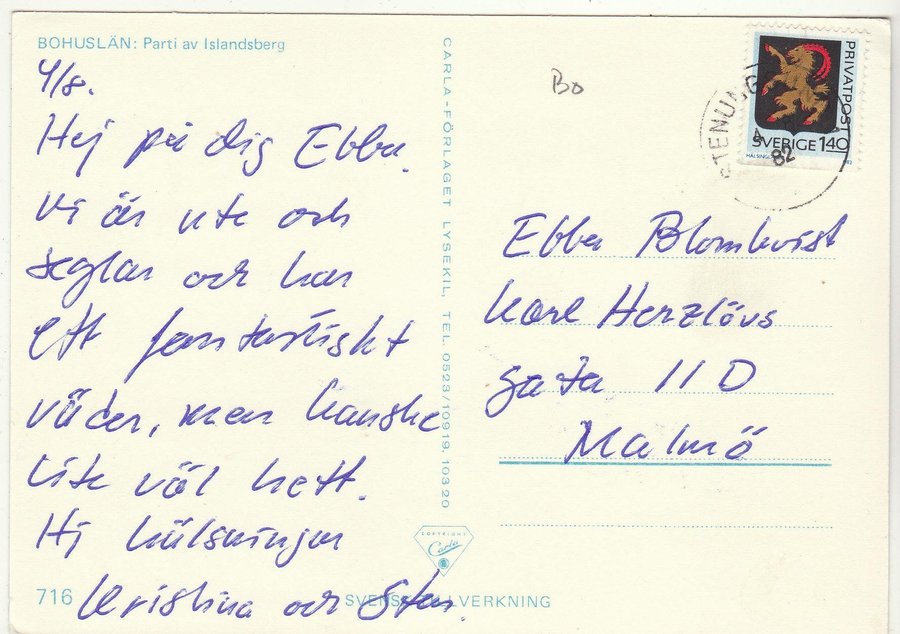 BOHUSLÄN: Parti av Islandsberg
4/8.
Hej på dig Ebba.
Vi är ute och
seglar och har
ett fantastiskt
väder, men kanske
lite väl hett.
Hj hälsningar
Kristina och Sten.
716
SVENSK TILLVERKNING
CARLA-FÖRLAGET LYSEKIL, TEL. 0523/10919, 10320
COPYRIGHT
Carla
Bo
STENUNG
4
82
PRIVATPOST
SVERIGE 140
Ebba Blomkvist
Karl Herzlövs
gata 11 D
Malmö